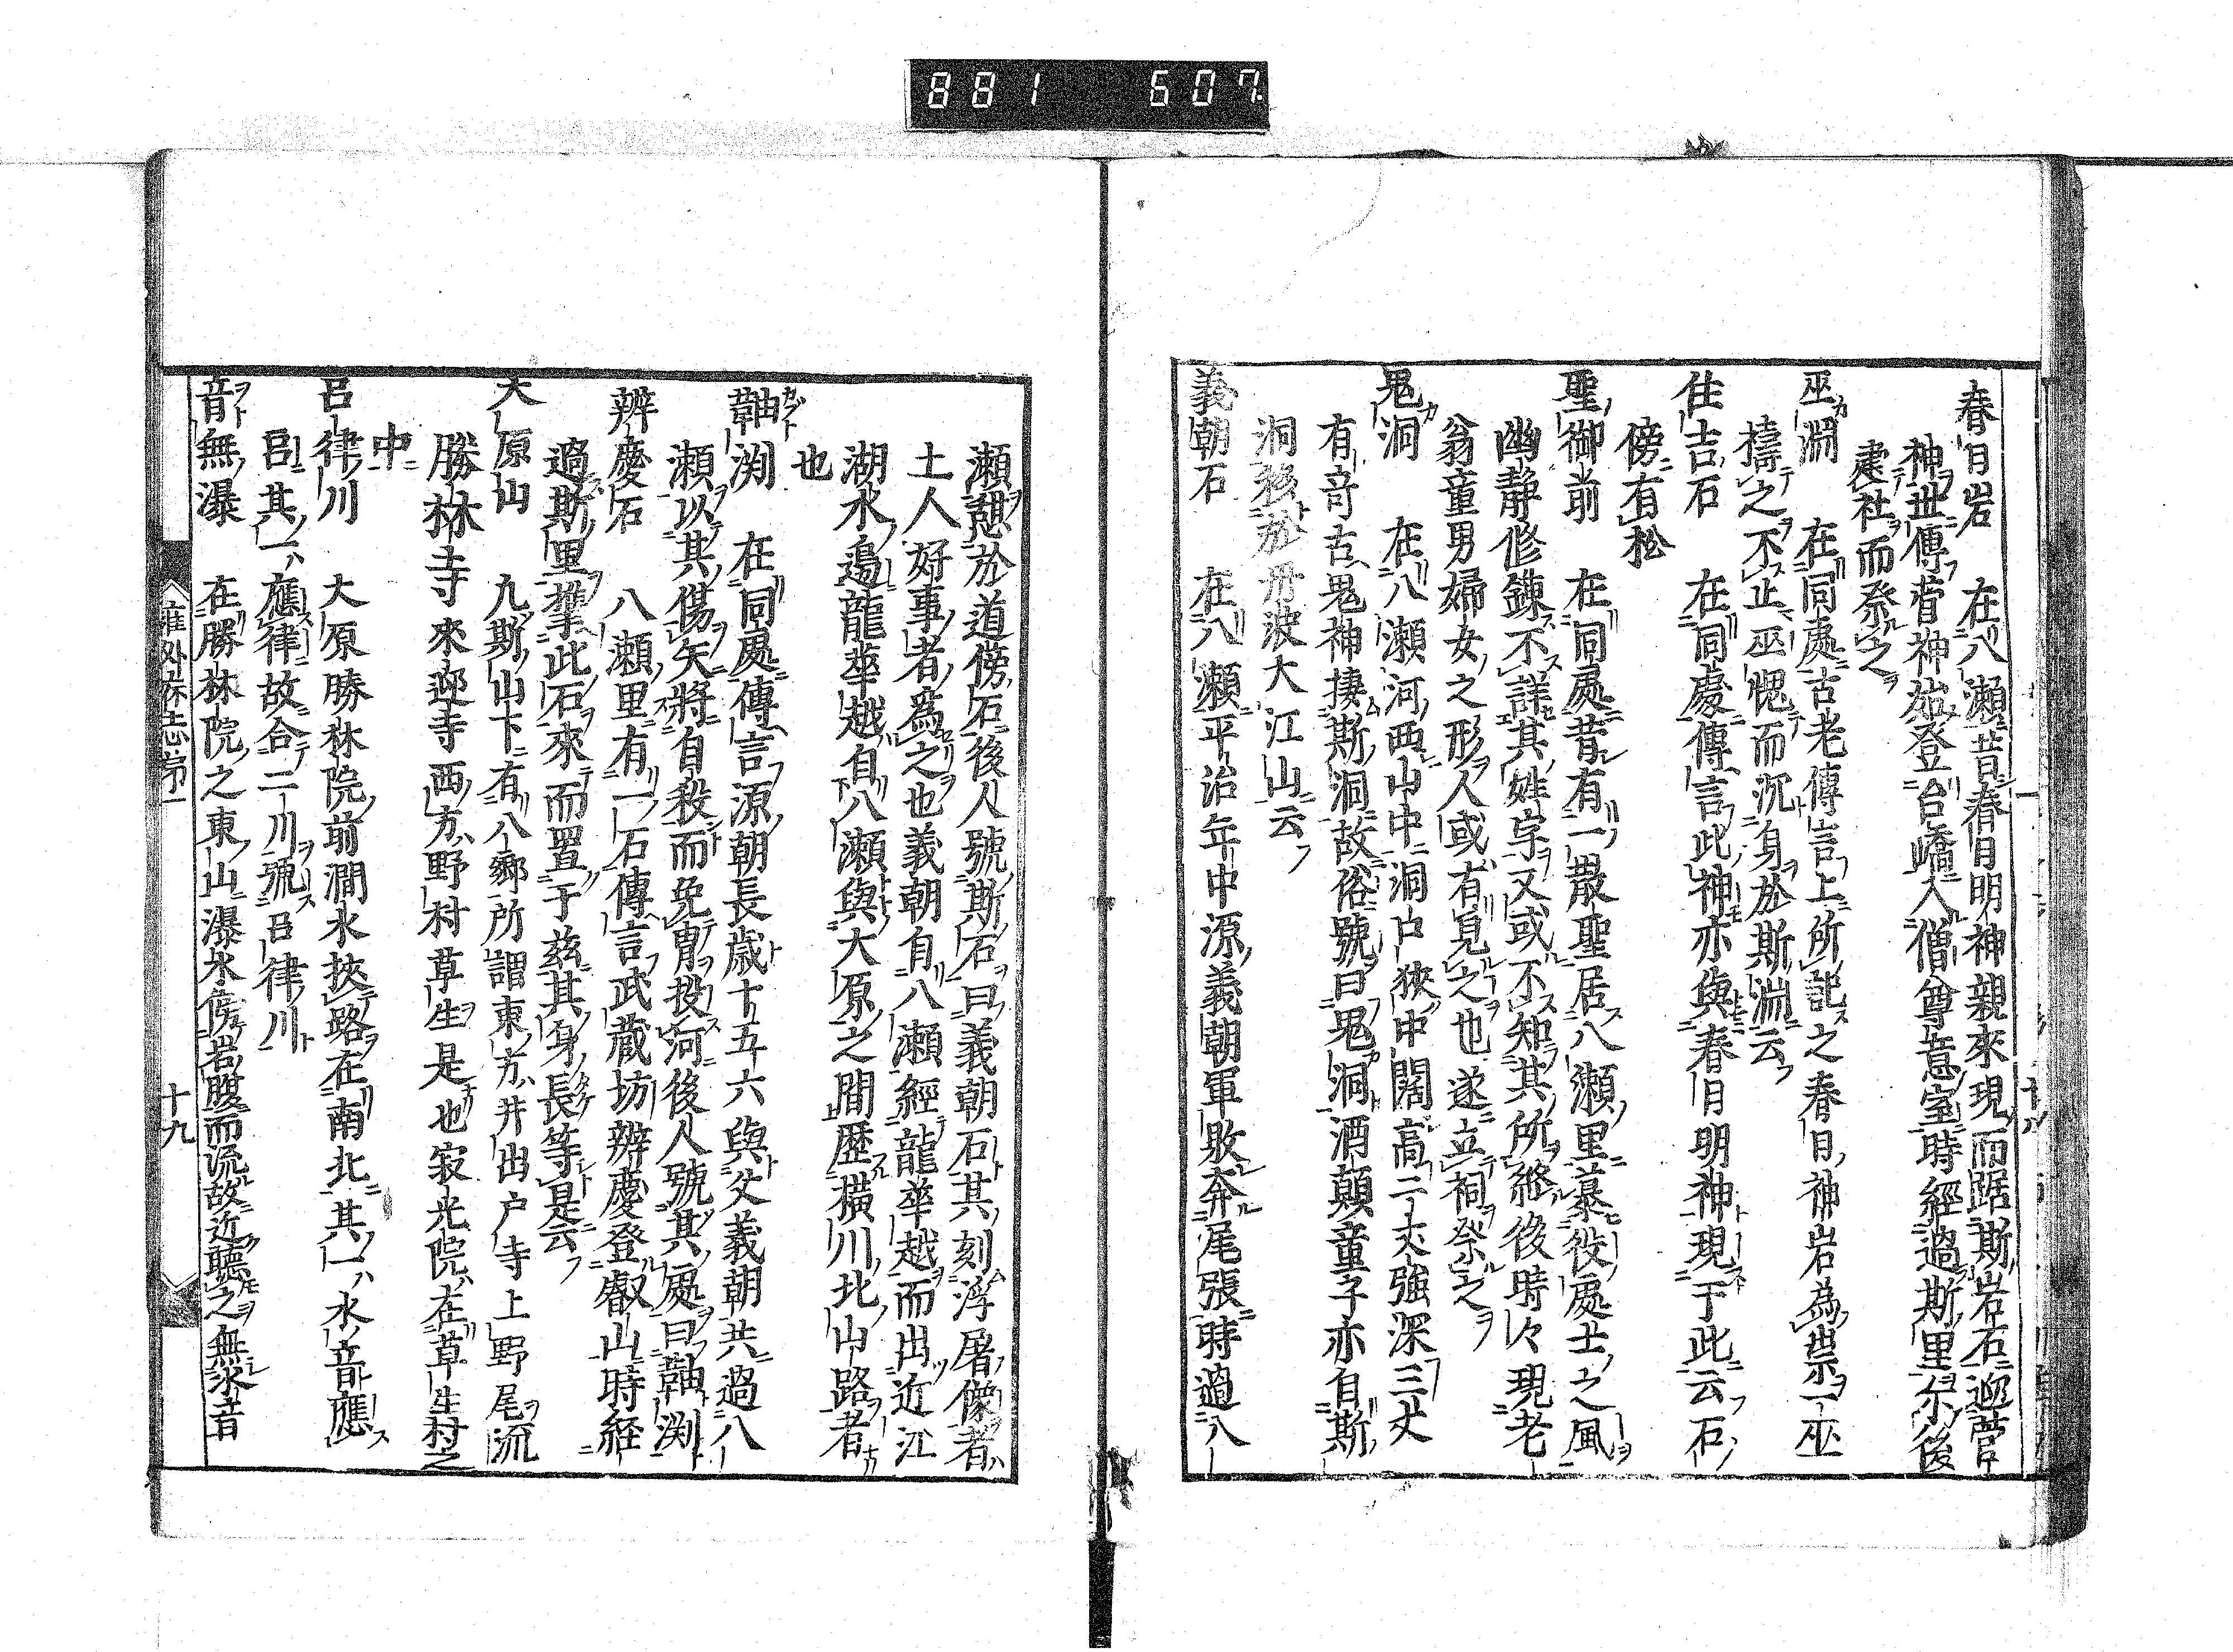 881 607
春日岩 在八瀬昔春日明神親來現而踞斯岩石迎菅
神世傳菅神始登台嶠入僧尊意室時經過斯里尓後
建社而祭之
巫淵 在同處古老傳言上所記之春日神岩為祟一巫
禱之不止巫愧而沉身於斯淵云
住吉石 在同處傳言此神亦與春日明神現于此云石
傍有松
聖御前 在同處昔有一散聖居八瀬里慕役處士之風
幽静修錬不詳其姓宗又或不知其所終後時々現老
翁童男婦女之形人或有見之也遂立祠祭之
鬼洞 在八瀬河西山中洞戸狹中闊高二丈強深三丈
有竒古鬼神捿斯洞故俗號曰鬼洞酒顛童子亦自斯
洞移於丹波大江山云
義朝石 在八瀬平治年中源義朝軍敗奔尾張時過八
瀬憩於道傍石後人號斯石曰義朝石其刻浮屠像者
土人好事者為之也義朝自八瀬經龍華越而出近江
湖水邉龍華越自八瀬與大原之間歴横川北山路者
也
䩜渕 在同處傳言源朝長歳十五六與父義朝共過八
瀬以其傷矢將自殺而免冑投河後人號其處曰䩜渕
辨慶石 八瀬里有一石傳言武蔵坊辨慶登叡山時経
過斯里擎此石來而置于兹其身長等是云
大原山 九斯山下有八郷所謂東方井出戸寺上野尾流
勝林寺來迎寺西方野村草生是也寂光院在草生村之
中
呂律川 大原勝林院前澗水挾路在南北其一水音應
呂其一應律故合二川號呂律川
音無瀑 在勝林院之東山瀑水傍岩腹而流故近聽之無水音
雍州府志第一 十九